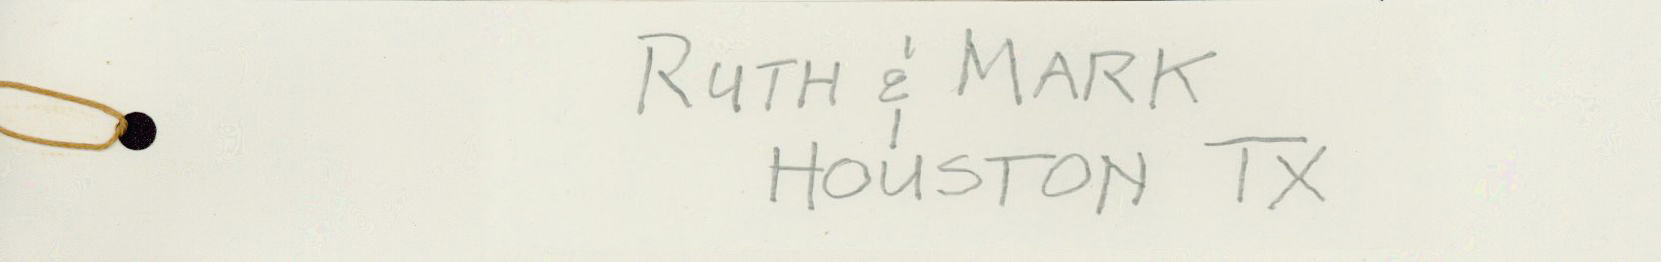 RUTH & MARK
HOUSTON TX